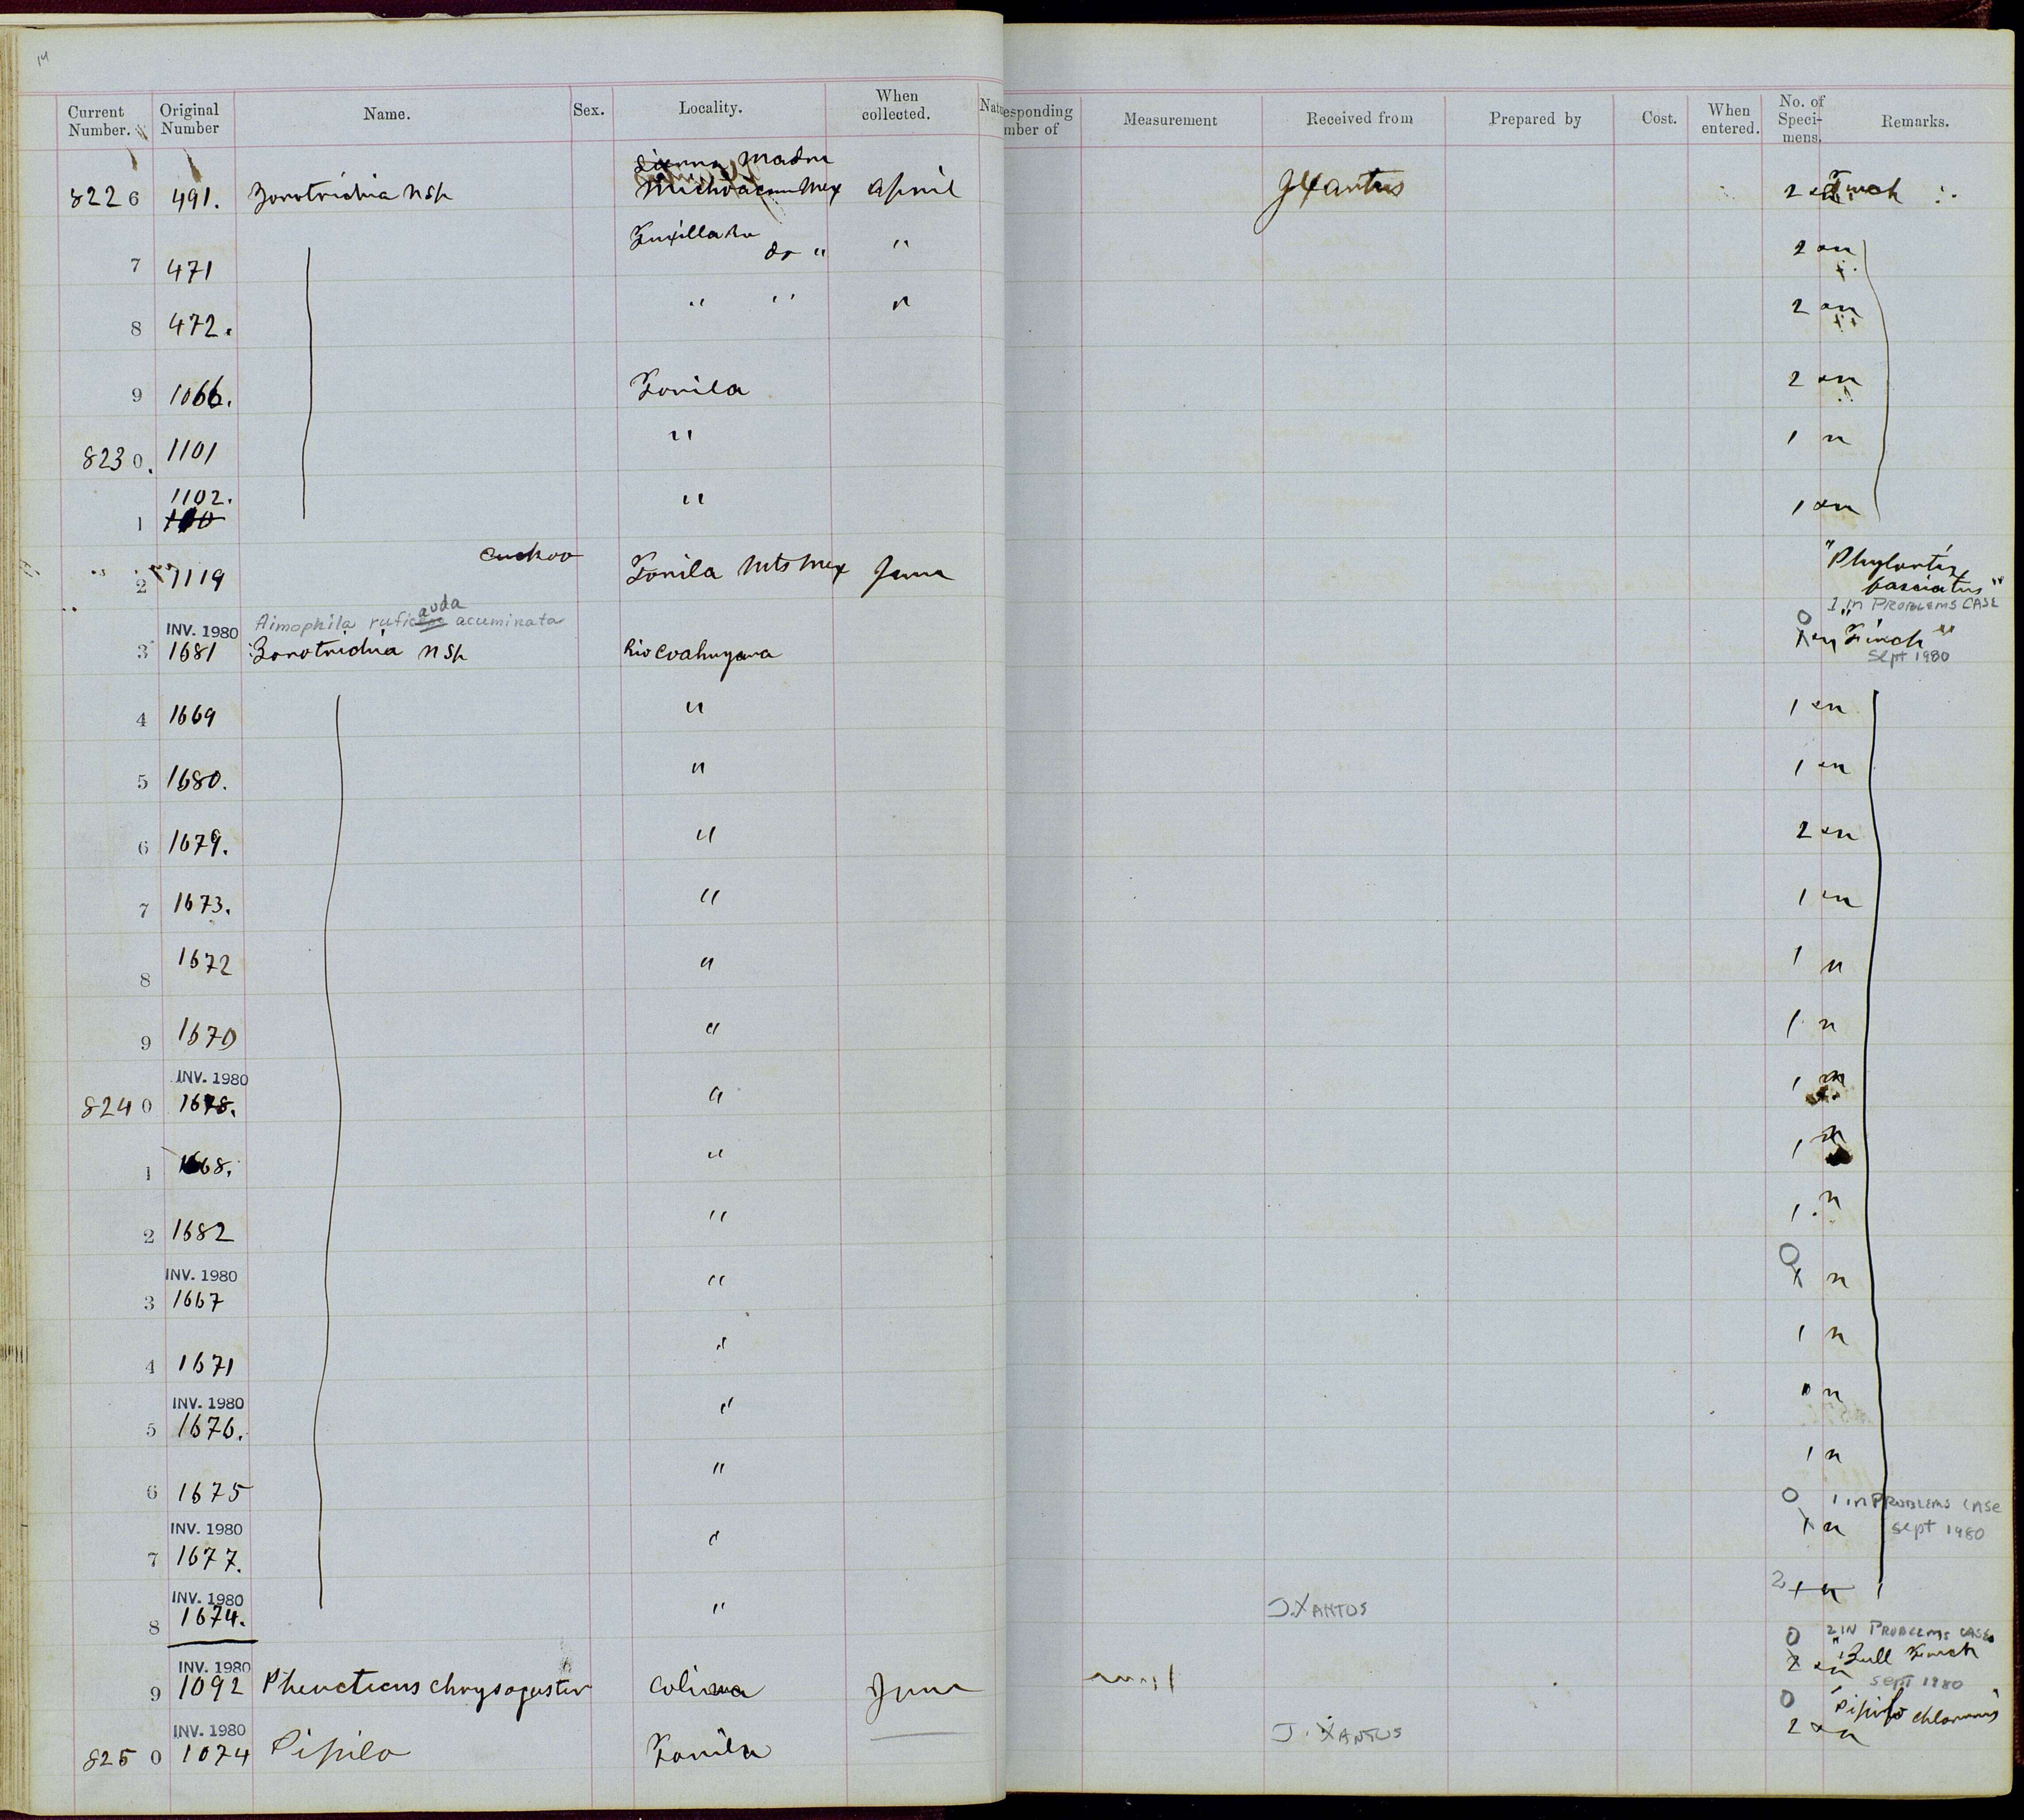 14
Current Number. Original Number Name. Sex. Locality. When collected. Natu
esponding mber of Measurement Received from Prepared by Cost. When entered. No. of Speci- mens. Remarks.
Sierra Madre
8226 491. Zonotrichia nsp Michoacan Mex April J Xantus 2
7 471 do " " 2
8 472. " " " 2
9 1066. Tonila 2
8230. 1101 " 1 n
1102.
1 " 1
2 1119 cuckoo Tonila Mts Mex June "
fasciatus"
INV. 1980 Aimophila ruficauda acuminata 0 1 in PROBLEMS CASE
3 1681 Zonotrichia nsp Rio Coahuyana 1 "Finch"
Sept 1980
4 1669 " 1
5 1680. " 1
6 1679. " 2
7 1673. " 1
8 1672 " 1 n
9 1670 " 1 n
INV. 1980
8240 1678. " 1
1 1668. " 1
2 1682 " 1 n
INV. 1980 0
3 1667 " 1 n
4 1671 " 1 n
INV. 1980
5 1676. " n
6 1675 " 1 n
INV. 1980 0 1 in PROBLEMS CASE
7 1677. " 1 n sept 1980
INV. 1980 2
8 1674. " J. XANTUS 1
INV. 1980 0 2 IN PROBLEMS CASE
9 1092 chrysogaster Colima June 2 "Bull Finch
sept 1980
INV. 1980 0 "Pipilo
8250 1074 Pipilo Tonila J. XANTUS 2